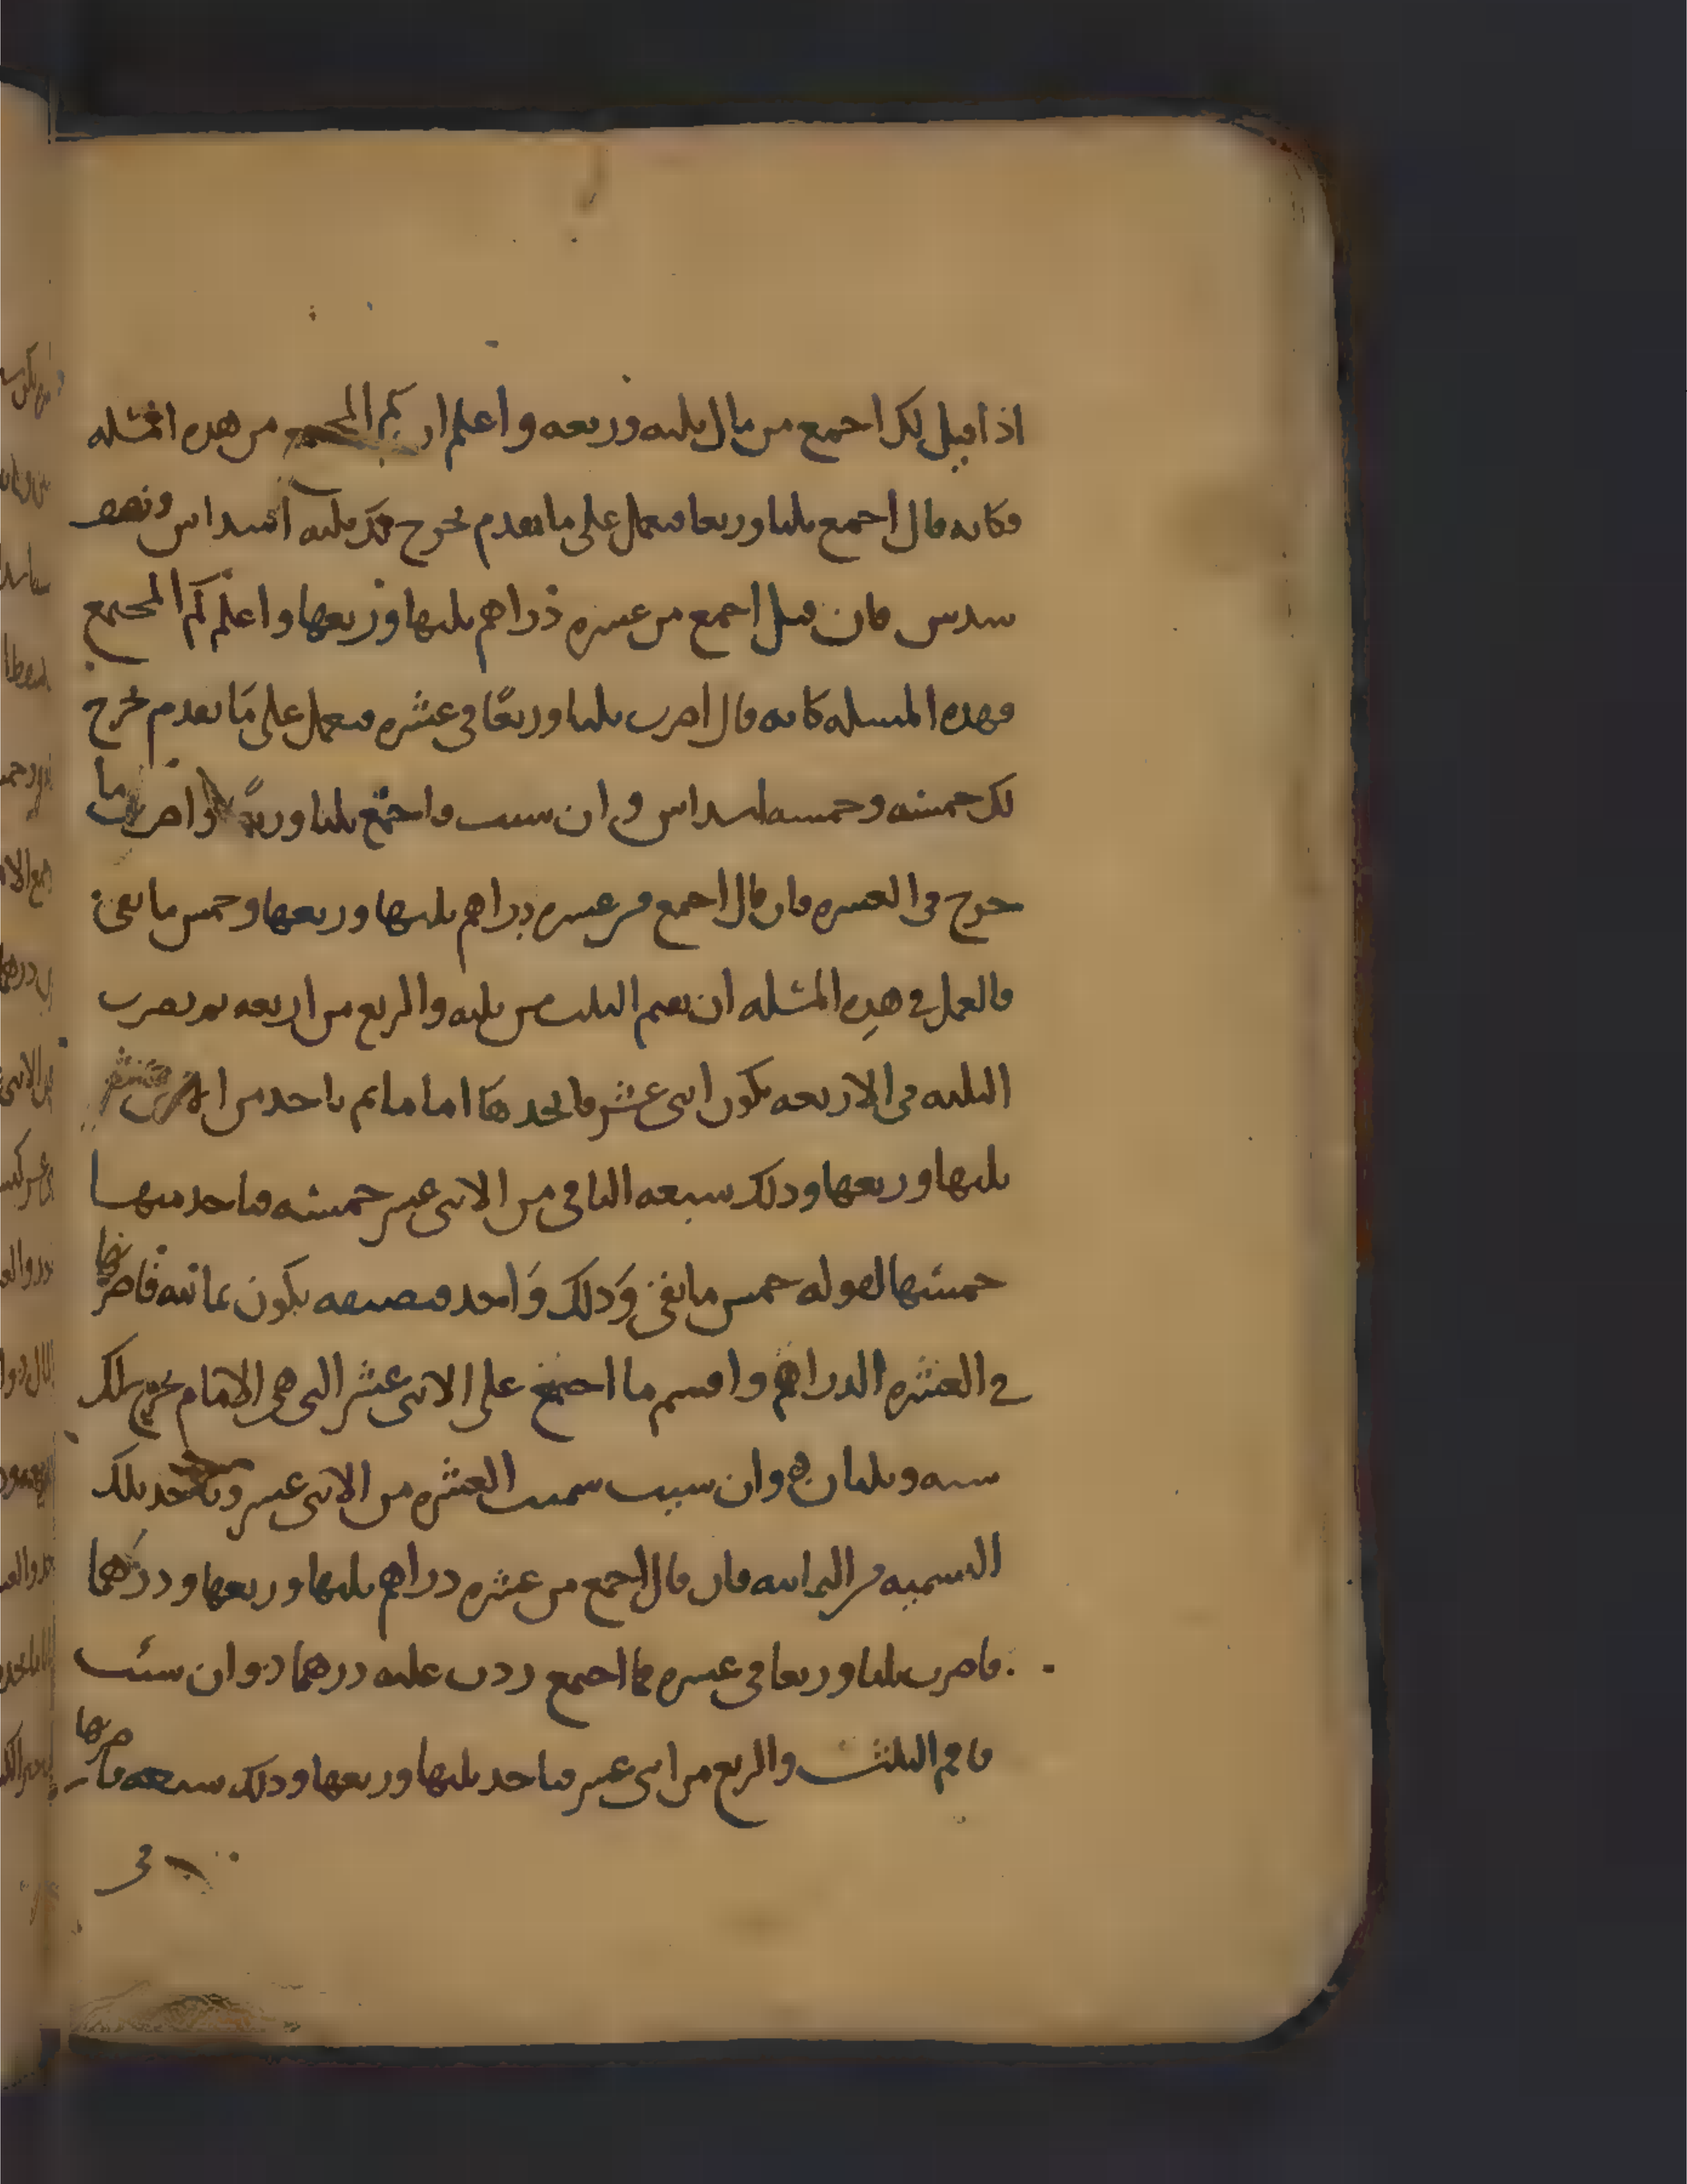 اذا قيل لك اجمع من مال ثلثه وربعه واعلم كم المجتمع من هذه المسئله
فكانه قال اجمع ثلثا وربعا فتعمل على ما تقدم يخرج لك ثلثه اسداس ونصف
سدس فان قيل اجمع من عشره دراهم ثلثها وربعها واعلم كم المجتمع
فهذه المسله كانه قال اضرب ثلثا وربعًا في عشره فتعمل على ما تقدم يخرج
لك خمسه وخمسه اسداس وان شيت فاجمع ثلثا وربعًا واضرب ما
خرج في العشره فان قال اجمع من عشره دراهم ثلثها وربعها وخمس ما بقى
فالعمل في هذه المسئله ان تقيم الثلث من ثلثه والربع من اربعه ثم تضرب
الثلثه في الاربعه يكون اثنى عشر فاتخدها اماما ثم تاخد من الاثنى عشر
ثلثها وربعها ودلك سبعه الباقى من الاثنى عشر خمسه فتاخد منها
خمسها لقوله خمس ما بقى ودلك واحد فتضيفه يكون ثمانيه فاضربها
في العشره الدراهم واقسم ما اجتمع على الاثنى عشر التى هى الامام يخرج لك
سته وثلثان وان شيت سميت العشره من الاثنى عشر وتاخد بتلك
التسميه من الثمانيه فان قال اجمع من عشره دراهم ثلثها وربعها ودرهما
فاضرب ثلثا وربعا في عشره فما اجتمع زدت عليه درهما وان شئت
فاقم الثلث والربع من اثنى عشر فتاخد ثلثها وربعها ودلك سبعه فاضربها
في